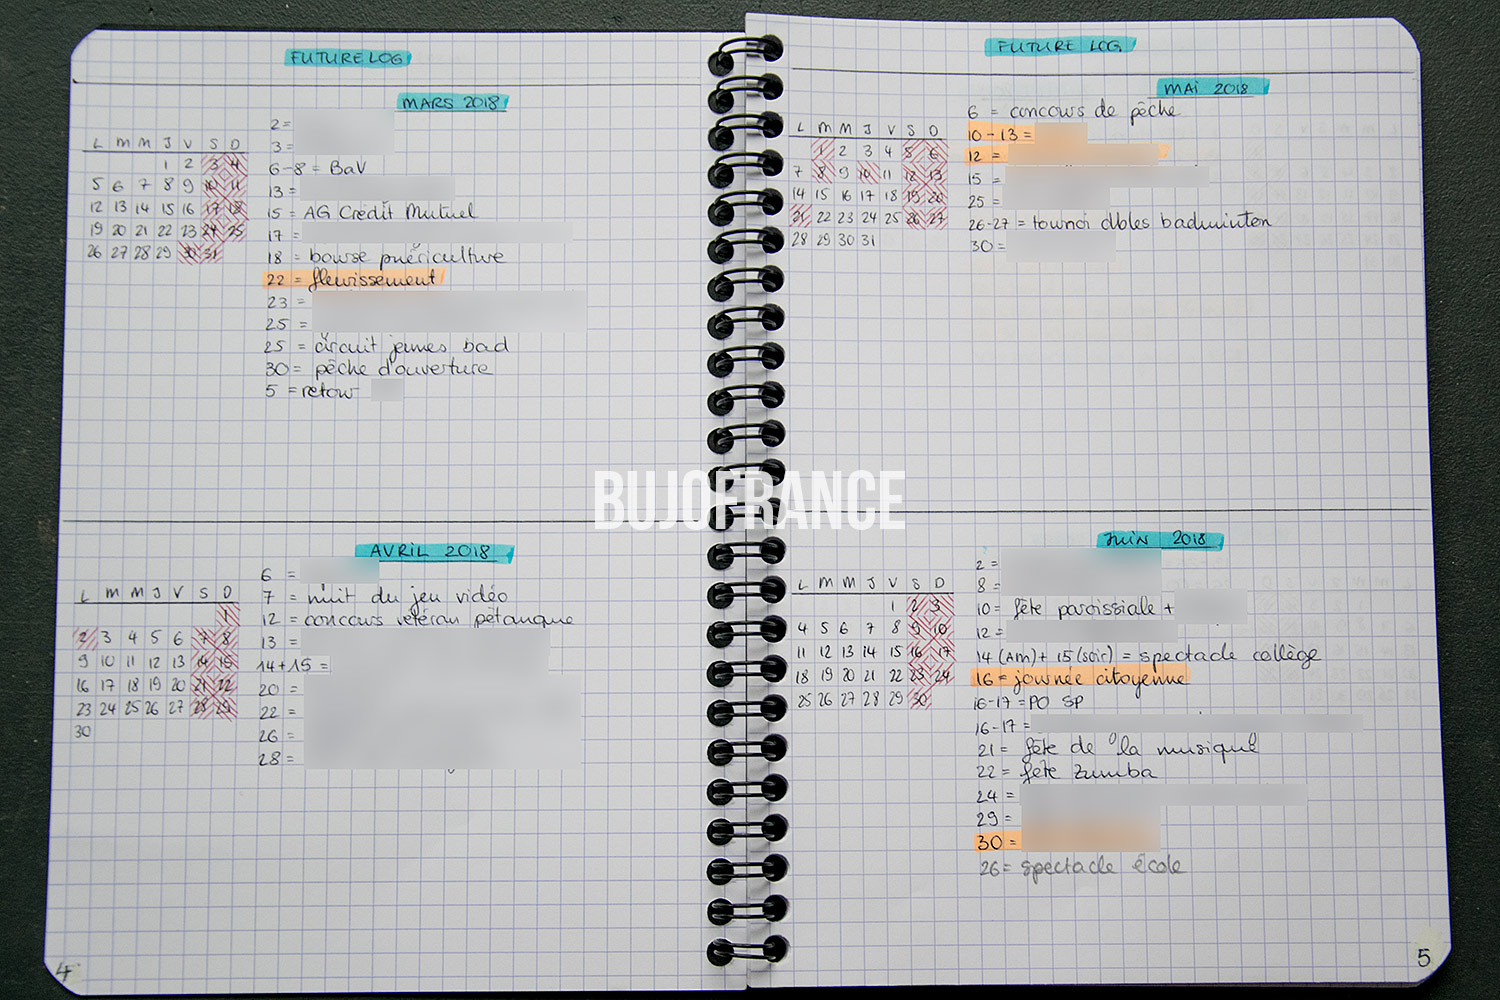 FUTURE LOG
MARS 2018
L M M J V S D
1 2 3 4
5 6 7 8 9 10 11
12 13 14 15 16 17 18
19 20 21 22 23 24 25
26 27 28 29 30 31
2 =
3 =
6-8 = BaV
13 =
15 = AG Crédit Mutuel
17 =
18 = bourse puériculture
22 = fleurissement
23 =
25 =
25 = circuit jeunes bad
30 = pêche d'ouverture
5 = retour
AVRIL 2018
L M M J V S D
1
2 3 4 5 6 7 8
9 10 11 12 13 14 15
16 17 18 19 20 21 22
23 24 25 26 27 28 29
30
6 =
7 = nuit du jeu vidéo
12 = concours vétéran pétanque
13 =
14+15 =
20 =
22 =
26 =
28 =
4
FUTURE LOG
MAI 2018
L M M J V S D
1 2 3 4 5 6
7 8 9 10 11 12 13
14 15 16 17 18 19 20
21 22 23 24 25 26 27
28 29 30 31
6 = concours de pêche
10-13 =
12 =
15 =
25 =
26-27 = tournoi dbles badminton
30 =
JUIN 2018
L M M J V S D
1 2 3
4 5 6 7 8 9 10
11 12 13 14 15 16 17
18 19 20 21 22 23 24
25 26 27 28 29 30
2 =
8 =
10 = fête paroissiale +
12 =
14 (AM) + 15 (soir) = spectacle collège
16 = journée citoyenne
16-17 = PO SP
16-17 =
21 = fête de la musique
22 = fête zumba
24 =
29 =
30 =
26 = spectacle école
5
BUJOFRANCE